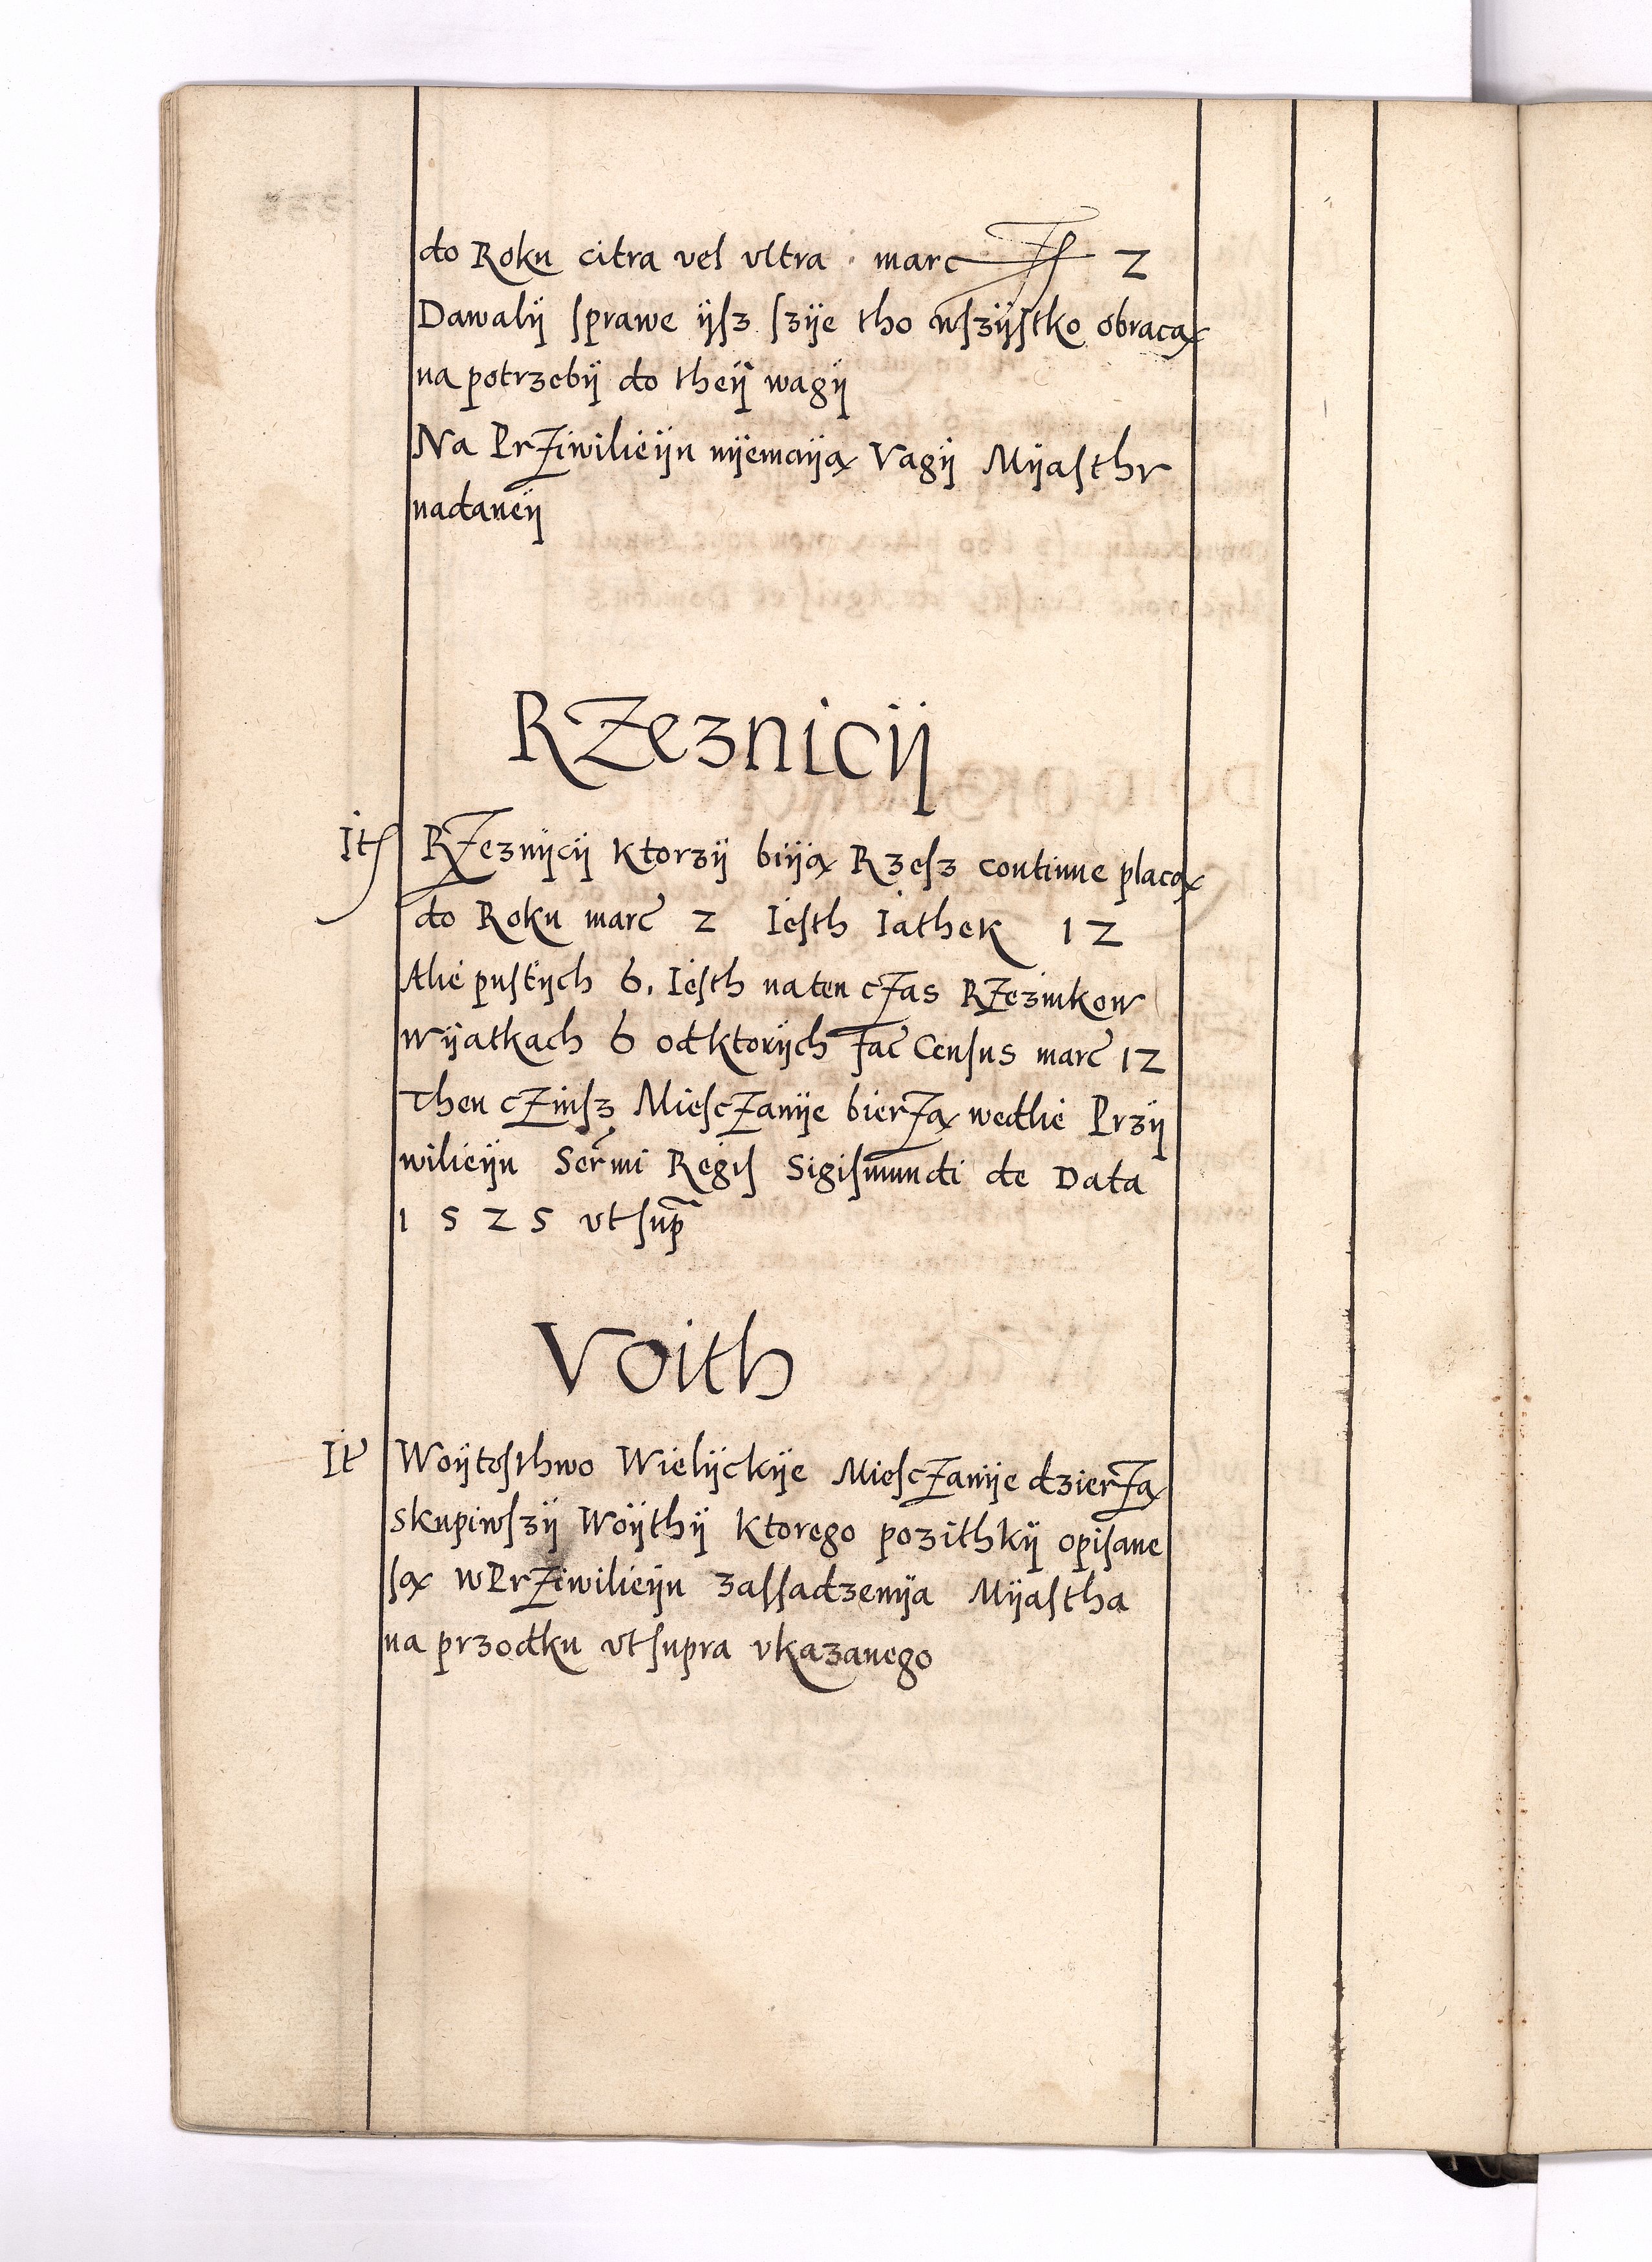 do Roku citra vel vltra · marc 2
Dawalÿ sprawe ÿsz szÿe tho wszÿstko obracą
na potrzebÿ do theÿ wagÿ
Na Prziwilieÿu nÿemaÿą Vagÿ Mÿasthu
nadaneÿ
RZeznicÿ
It RZeznÿcÿ ktorzÿ biÿą Rzesz continue placą
do Roku marc 2 Iesth Iathek 12
Alie pustÿch 6. Iesth naten cZas RZeznikow
Wÿatkach 6 odktorÿch fac Census marc 12
Then cZinsz MiescZanÿe bierZą wedlie Przÿ
wilieÿu Sermi Regis Sigismundi de Data
1525 vtsup
Voith
It Woÿtosthwo Wielÿckÿe MiescZanÿe dzierZą
skupiwszÿ Woÿthÿ ktorego pozithkÿ opisane
są wPrZiwilieÿu zassadzenÿa Mÿastha
na przodku vtsupra vkazanego